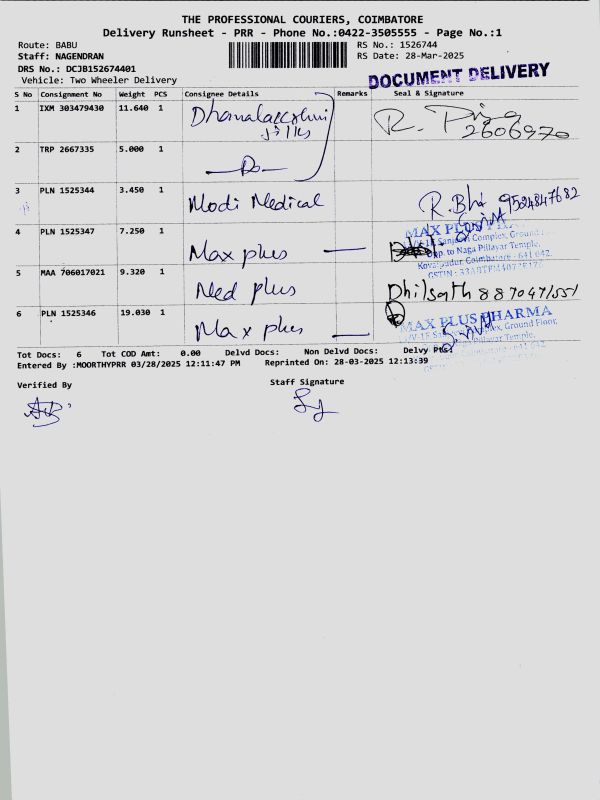 THE PROFESSIONAL COURIERS, COIMBATORE
Delivery Runsheet - PRR - Phone No.:0422-3505555 - Page No.:1
Route: BABU
RS No.: 1526744
Staff: NAGENDRAN
RS Date: 28-Mar-2025
DRS No.: DCJB152674401
Vehicle: Two Wheeler Delivery
DOCUMENT DELIVERY
S No Consignment No Weight PCS Consignee Details Remarks Seal & Signature
1 IXM 303479430 11.640 1 Dhanalakshmi R. Priya
2606970
2 TRP 2667335 5.000 1 —Do—
3 PLN 1525344 3.450 1 Modi Medical R. 9524847682
4 PLN 1525347 7.250 1 Max plus — MAX PLUS
Complex, Ground
Opp. to Naga Pillayar Temple,
Coimbatore - 641 042.
5 MAA 706017021 9.320 1 Med plus Dhilsath 8870471551
6 PLN 1525346 19.030 1 Max plus — MAX PLUS PHARMA
Ground Floor,
Pillayar Temple,
Tot Docs: 6 Tot COD Amt: 0.00 Delvd Docs: Non Delvd Docs: Delvy Pts:
Entered By :MOORTHYPRR 03/28/2025 12:11:47 PM Reprinted On: 28-03-2025 12:13:39
Verified By Staff Signature